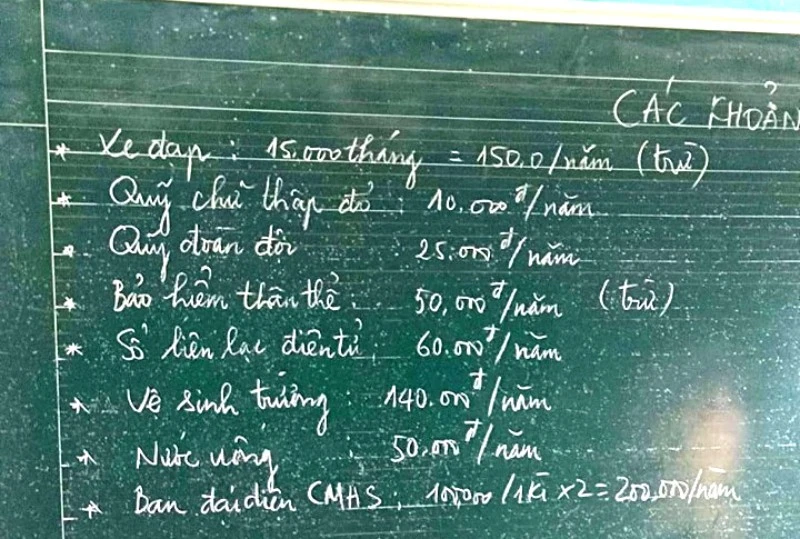 CÁC KHOẢN
* Xe đạp : 15.000 tháng = 150,0/năm (trừ)
* Quỹ chữ thập đỏ : 10.000đ/năm
* Quỹ đoàn đội 25.000đ/năm
* Bảo hiểm thân thể : 50,000đ/năm (trừ)
* Sổ liên lạc điện tử : 60.000đ/năm
* Vệ sinh trường : 140.000đ/năm
* Nước uống : 50.000đ/năm
* Ban đại diện CMHS : 100000/1kì x2 = 200,000/năm